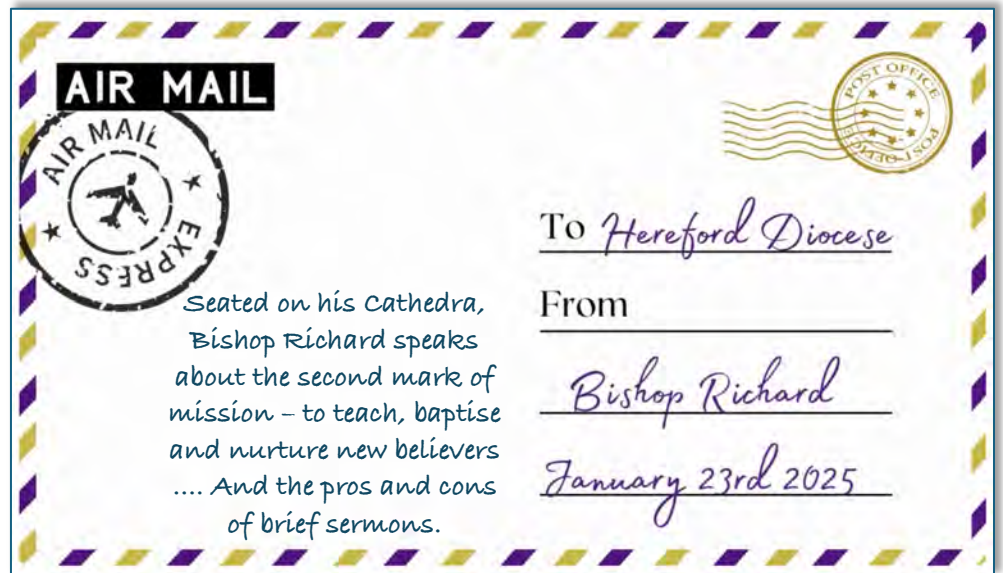 AIR MAIL
AIR MAIL
EXPRESS
POST OFFICE
POST OFFICE
To Hereford Diocese
From
Bishop Richard
January 23rd 2025
Seated on his Cathedra,
Bishop Richard speaks
about the second mark of
mission – to teach, baptise
and nurture new believers
.... And the pros and cons
of brief sermons.